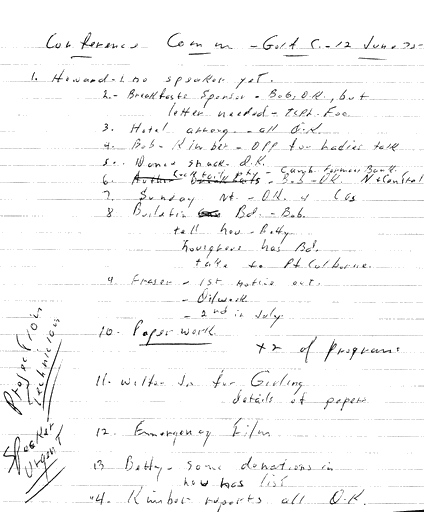 Conference Comm - Golf C. - 12 June
1. Howard - no speaker yet.
2. - Breakfast Sponsor - Bob, O.K., but
letter needed -
3. Hotel arrang - all O.K.
4. Bob - Kimber - opp for ladies talk
5. - Dance O.K.
6. Cocktail Party - Bob - OK.
7. Sunday Nt. - OK.
8 Bulletin Bd. - Bob.
tell how - Betty
has Bd.
take to Pt Colborne.
9. Fraser - 1st notice out.
- Oilweek
- 2nd in July
10. Paper work
of program
11. Write Jn for Girling
details of papers
12. Emergency Film
13 Betty - some donations in
now has list
14. Kimber reports all O.K.
Projection
Technician
Speaker
Urgent